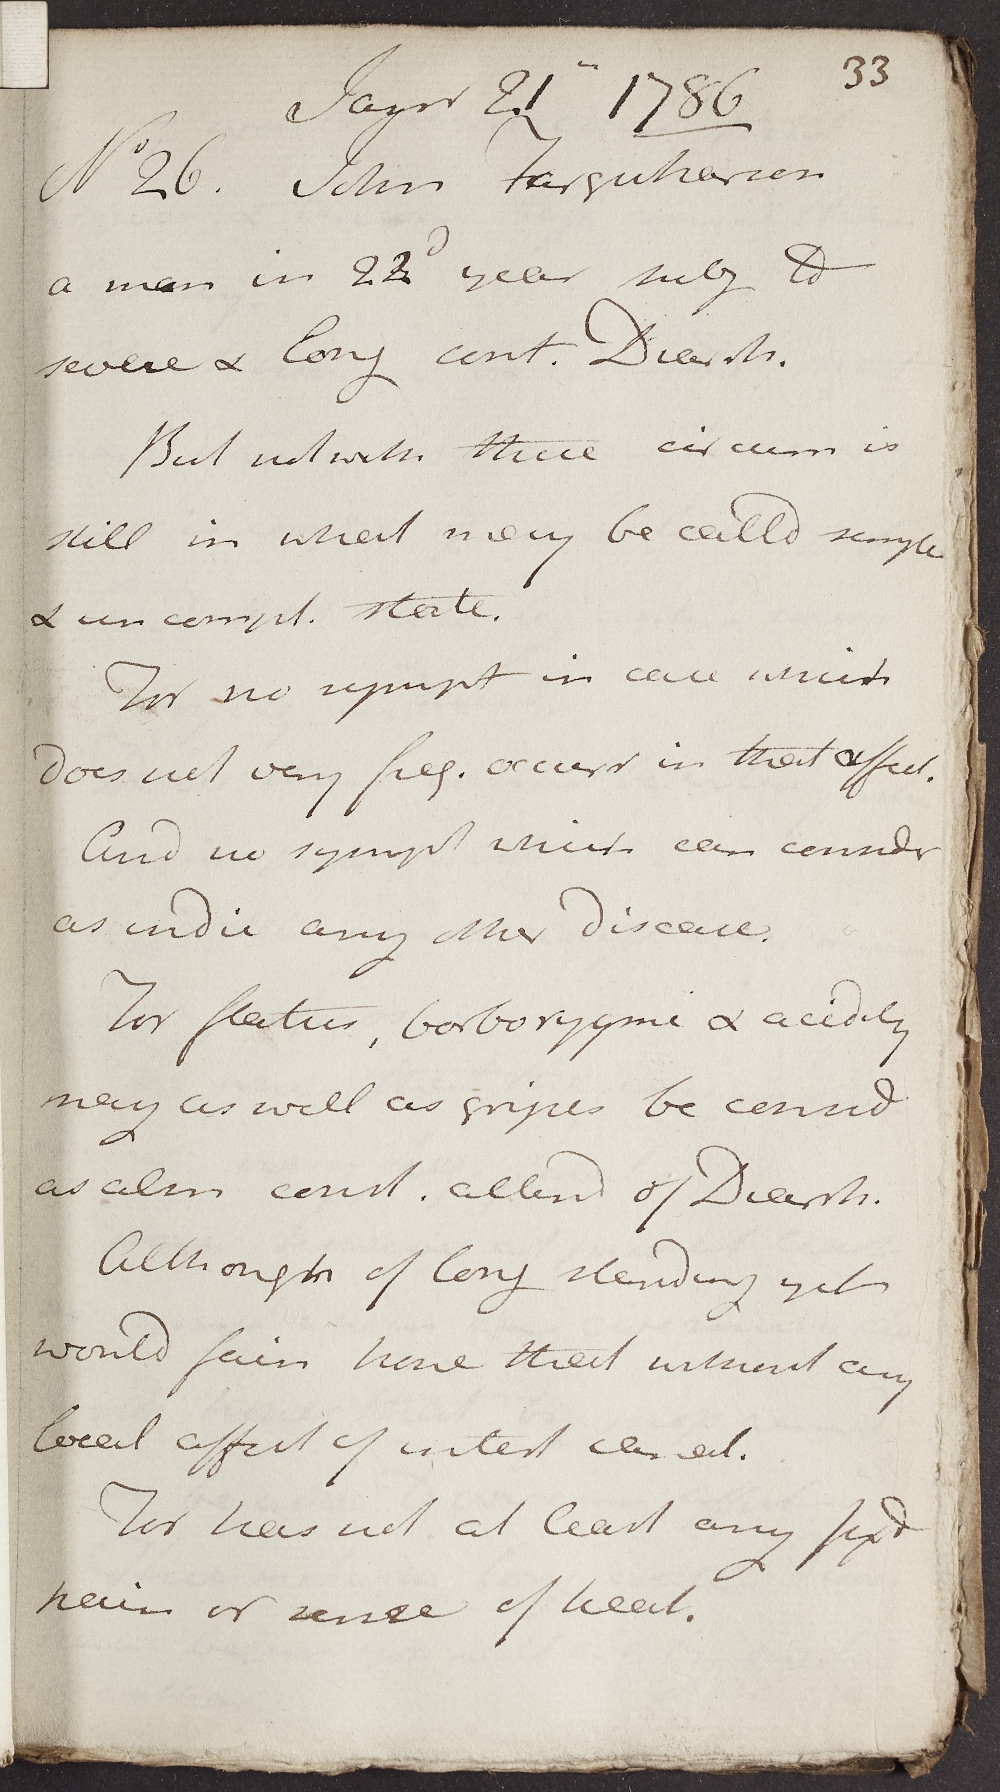 33
Jayr 21 1786
No 26. John Farquharson
a man in 22d year subj to
severe & long cont. Diarrh.
But notwith. these circum is
still in what may be calld simple
& uncompl. state.
For no sympt in case which
does not very freq. occurr in that affect.
And no sympt which can consider
as indic any other Disease.
For flatus, borborygmi & acidity
may as well as gripes be considd
as alm const. attend of Diarrh.
Although of long standing yet
would fain hope that without any
local affect of intest canal.
For has not at least any fixd
pain or sense of heat.